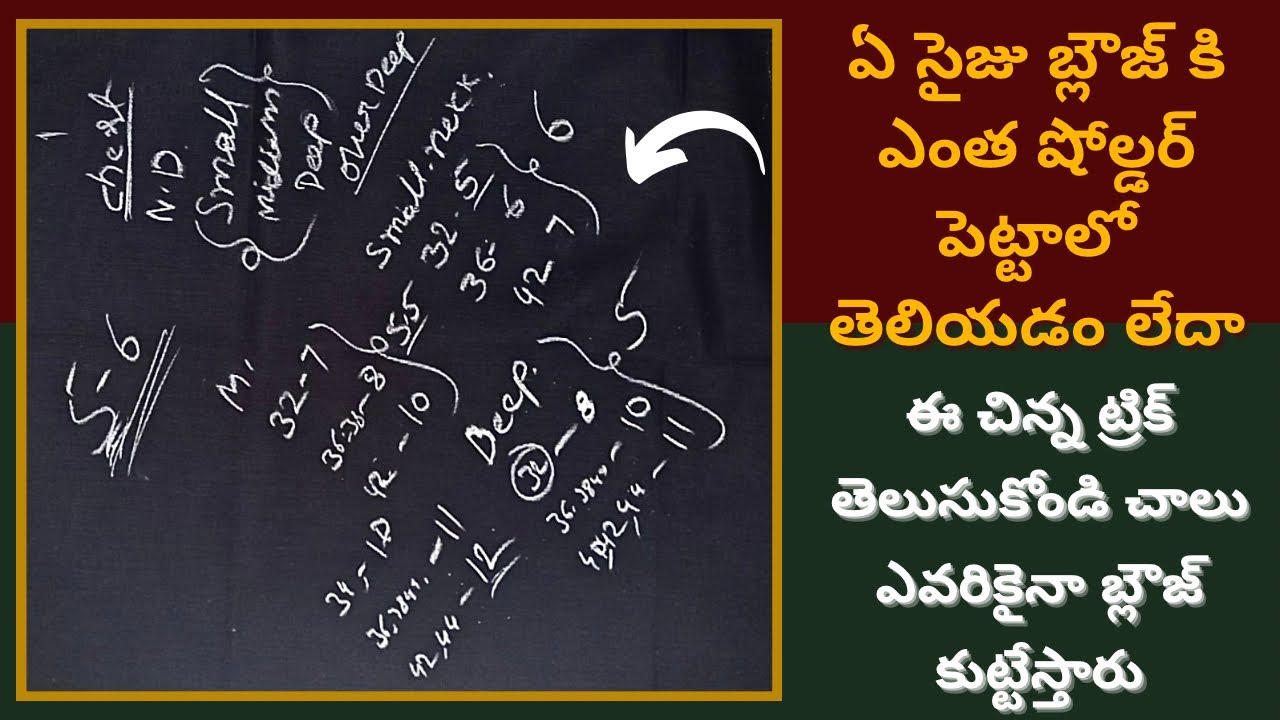 chest
N.D
Small
Middam
Deep
over Deep
Small. nekk.
32. 5
36- 6
42-7
6
S-6
M.
32-7
36-38-8
42 - 10
5.5
Deep.
32-8
36.3840-10
42,44-11
5
34,-10
36,3840.-11
42,44-12
ఏ సైజు బ్లౌజ్ కి
ఎంత షోల్డర్
పెట్టాలో
తెలియడం లేదా
ఈ చిన్న ట్రిక్
తెలుసుకోండి చాలు
ఎవరికైనా బ్లౌజ్
కుట్టేస్తారు